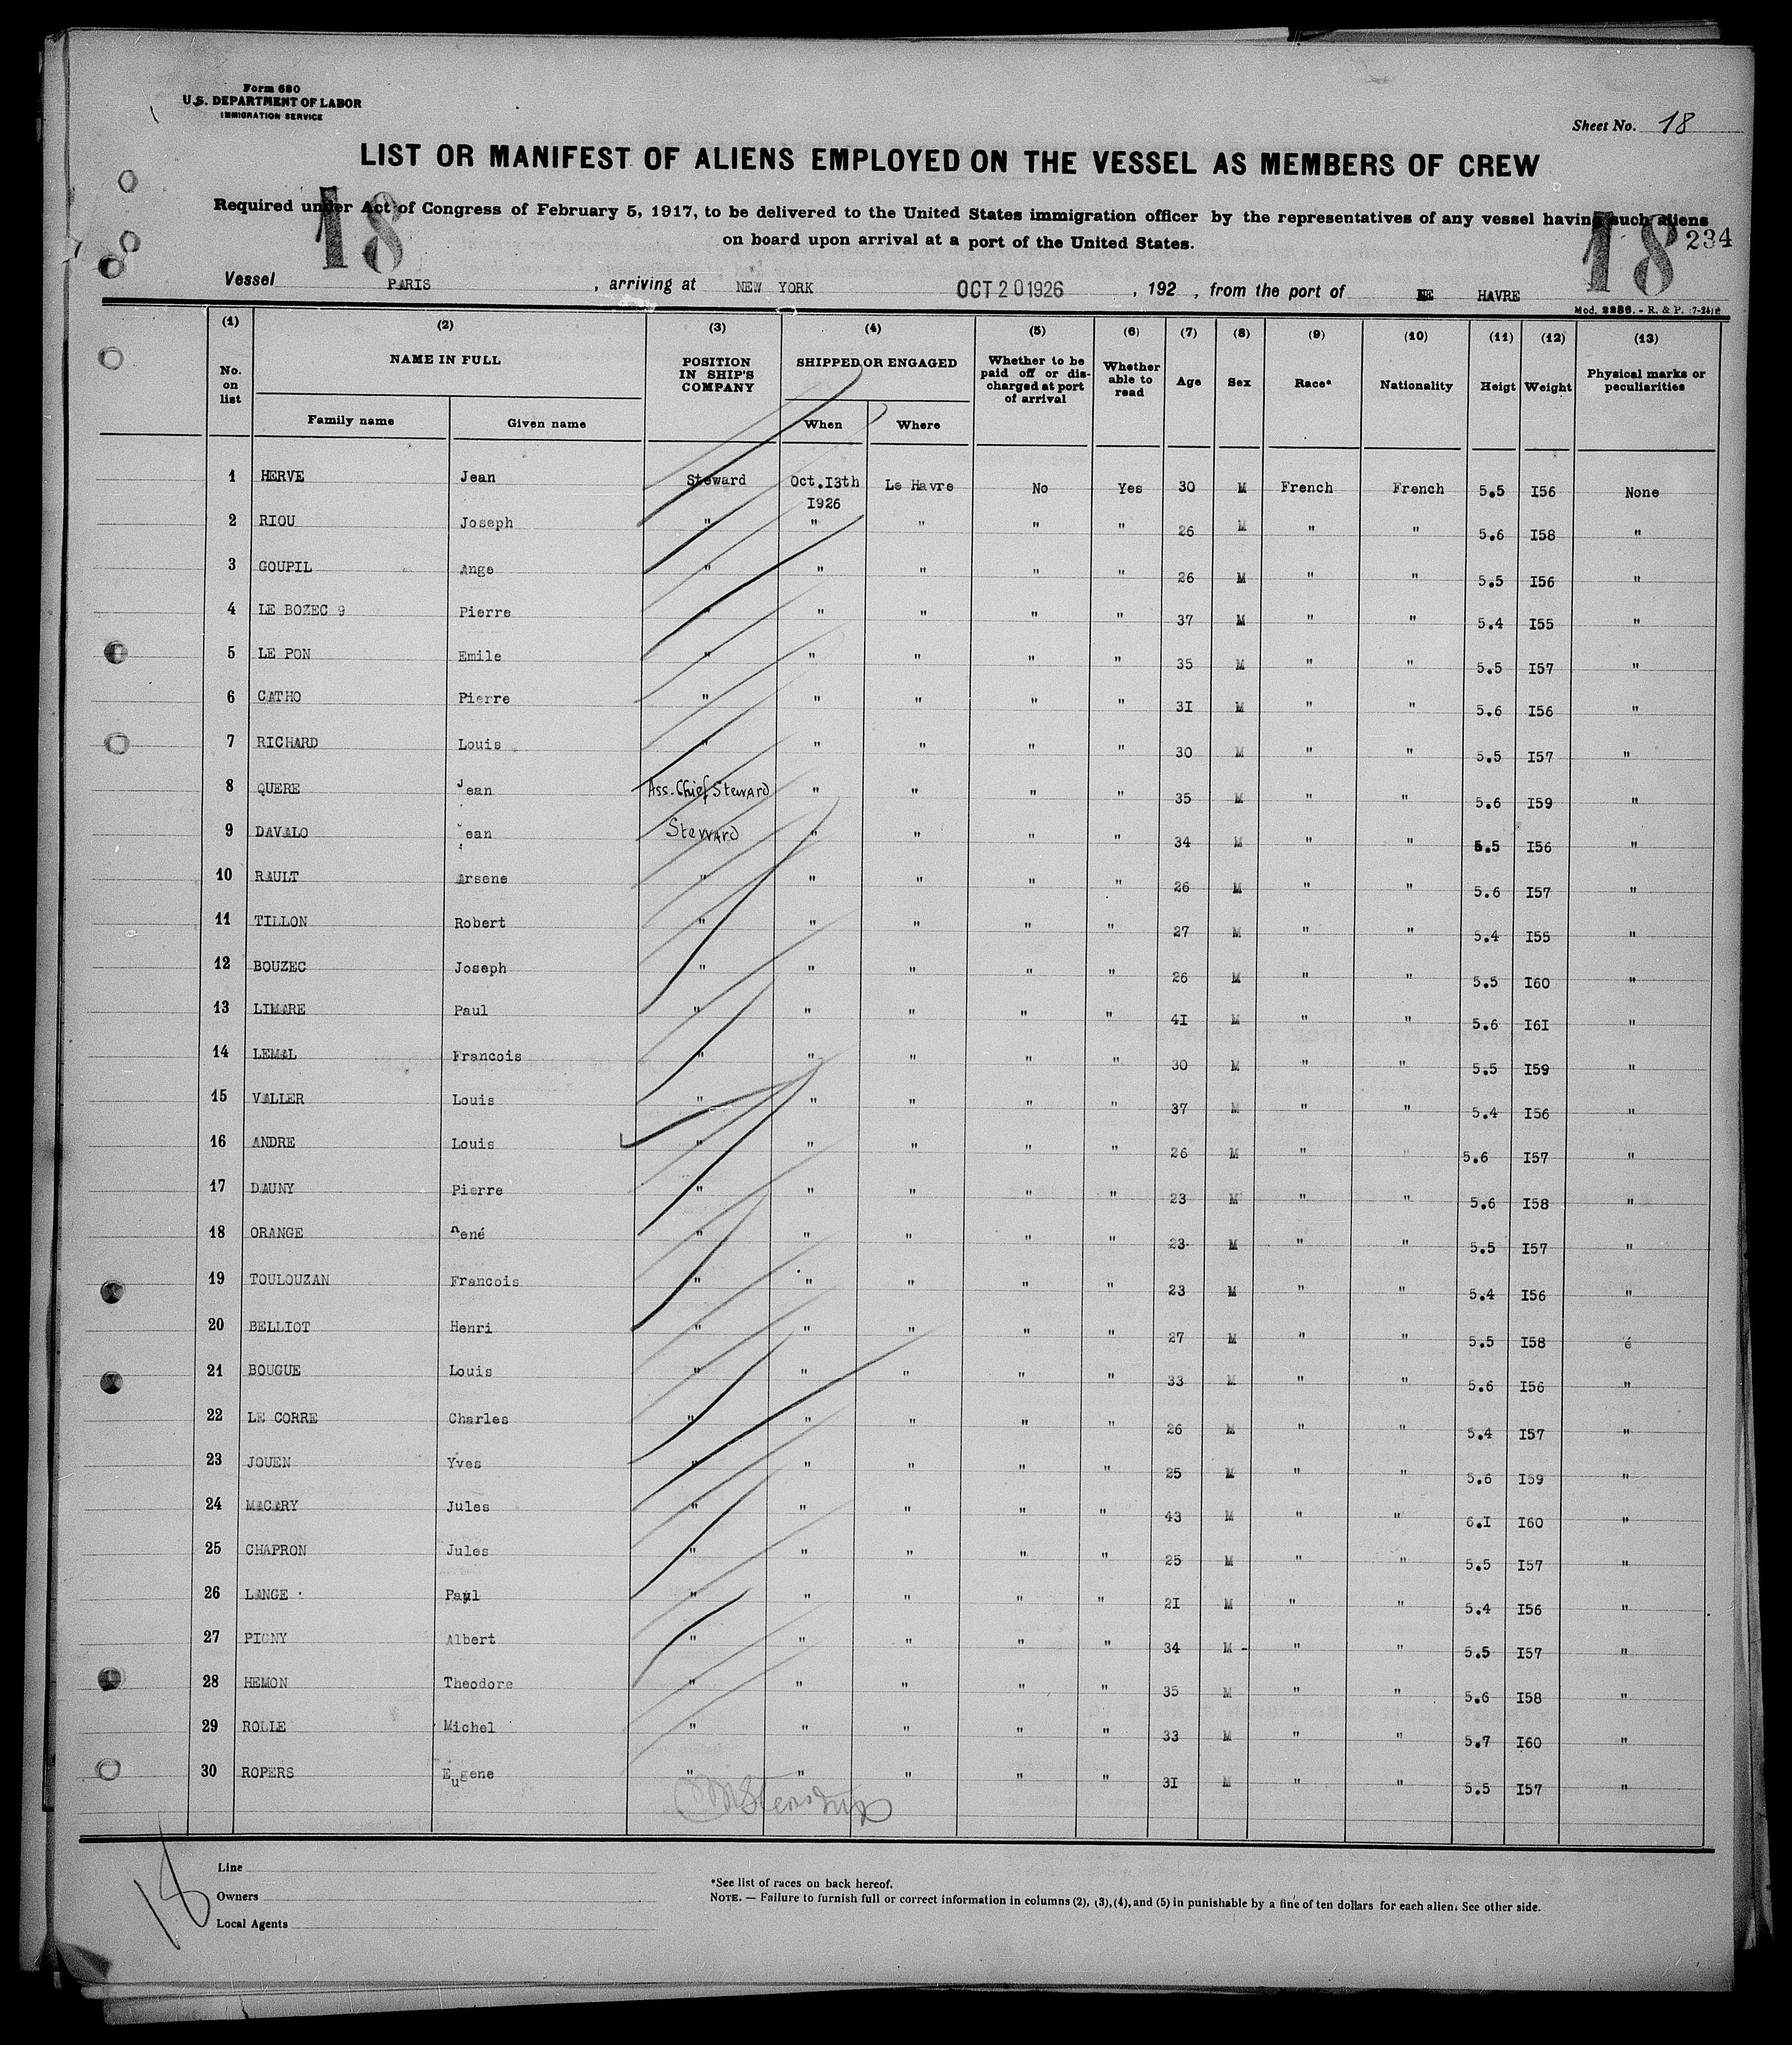 Form 680
U.S. DEPARTMENT OF LABOR
IMMIGRATION SERVICE
Sheet No. 18
LIST OR MANIFEST OF ALIENS EMPLOYED ON THE VESSEL AS MEMBERS OF CREW
Required under Act of Congress of February 5, 1917, to be delivered to the United States immigration officer by the representatives of any vessel having such aliens
on board upon arrival at a port of the United States.
18
18 234
Vessel PARIS , arriving at NEW YORK OCT 20 1926 , 192 , from the port of LE HAVRE
Mod. 2286. - R. & P. (7-24)
(1) (2) (3) (4) (5) (6) (7) (8) (9) (10) (11) (12) (13)
No. on list NAME IN FULL POSITION IN SHIP'S COMPANY SHIPPED OR ENGAGED Whether to be paid off or discharged at port of arrival Whether able to read Age Sex Race* Nationality Heigt Weight Physical marks or peculiarities
Family name Given name When Where
1 HERVE Jean Steward Oct.I3th I926 Le Havre No Yes 30 M French French 5.5 I56 None
2 RIOU Joseph " " " " " 26 M " " 5.6 I58 "
3 GOUPIL Ange " " " " " 26 M " " 5.5 I56 "
4 LE BOZEC 9 Pierre " " " " " 37 M " " 5.4 I55 "
5 LE PON Emile " " " " " 35 M " " 5.5 I57 "
6 CATHO Pierre " " " " " 3I M " " 5.6 I56 "
7 RICHARD Louis " " " " " 30 M " " 5.5 I57 "
8 QUERE Jean Ass. Chief Steward " " " " 35 M " " 5.6 I59 "
9 DAVALO Jean Steward " " " " 34 M " " 5.5 I56 "
10 RAULT Arsene " " " " " 26 M " " 5.6 I57 "
11 TILLON Robert " " " " " 27 M " " 5.4 I55 "
12 BOUZEC Joseph " " " " " 26 M " " 5.5 I60 "
13 LIMARE Paul " " " " " 4I M " " 5.6 I6I "
14 LEMAL Francois " " " " " 30 M " " 5.5 I59 "
15 VALLER Louis " " " " " 37 M " " 5.4 I56 "
16 ANDRE Louis " " " " " 26 M " " 5.6 I57 "
17 DAUNY Pierre " " " " " 23 M " " 5.6 I58 "
18 ORANGE René " " " " " 23 M " " 5.5 I57 "
19 TOULOUZAN Francois " " " " " 23 M " " 5.4 I56 "
20 BELLIOT Henri " " " " " 27 M " " 5.5 I58 é
21 BOUGUE Louis " " " " " 33 M " " 5.6 I56 "
22 LE CORRE Charles " " " " " 26 M " " 5.4 I57 "
23 JOUEN Yves " " " " " 25 M " " 5.6 I59 "
24 MACARY Jules " " " " " 43 M " " 6.I I60 "
25 CHAPRON Jules " " " " " 25 M " " 5.5 I57 "
26 LANGE Paul " " " " " 2I M " " 5.4 I56 "
27 PIGNY Albert " " " " " 34 M - " " 5.5 I57 "
28 HEMON Theodore " " " " " 35 M " " 5.6 I58 "
29 ROLLE Michel " " " " " 33 M " " 5.7 I60 "
30 ROPERS Eugene " " " " " 3I M " " 5.5 I57 "
18
Line
Owners
Local Agents
*See list of races on back hereof.
NOTE. — Failure to furnish full or correct information in columns (2), (3), (4), and (5) in punishable by a fine of ten dollars for each alien. See other side.